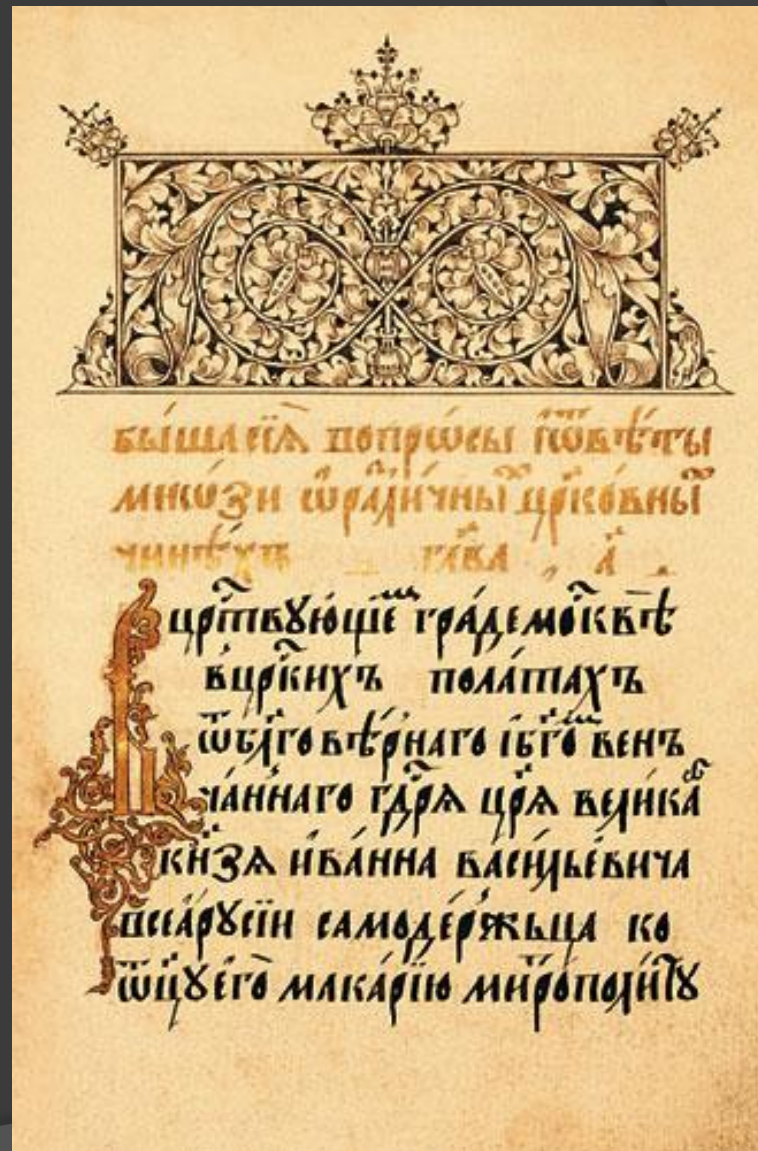 бы́ша сїѧ̀ вопрѡ́сы і҆ ѿвѣ́ты
мнѡ́ѕи ѡ҆ разли́чны хⷯ црⷪ҇ко́вны хⷯ
чинѣ́хъ глава̀ а҃
Въ црⷭ҇твꙋющеⷨ гра́де москвѣ̀
в црⷭ҇кихъ пола́тахъ
ѿ бл҃говѣ́рнаго і҆ бг҃овен
ча́ннаго гдⷭ҇рѧ цр҃ѧ вели́каⷢ
кнѧ́зѧ и҆ва́нна васи́льевича
всеѧ̀ рꙋсїи самоде́ржьца ко
ѻ҆ц҃ꙋ є҆го̀ мака́рїю митрополи́тꙋ